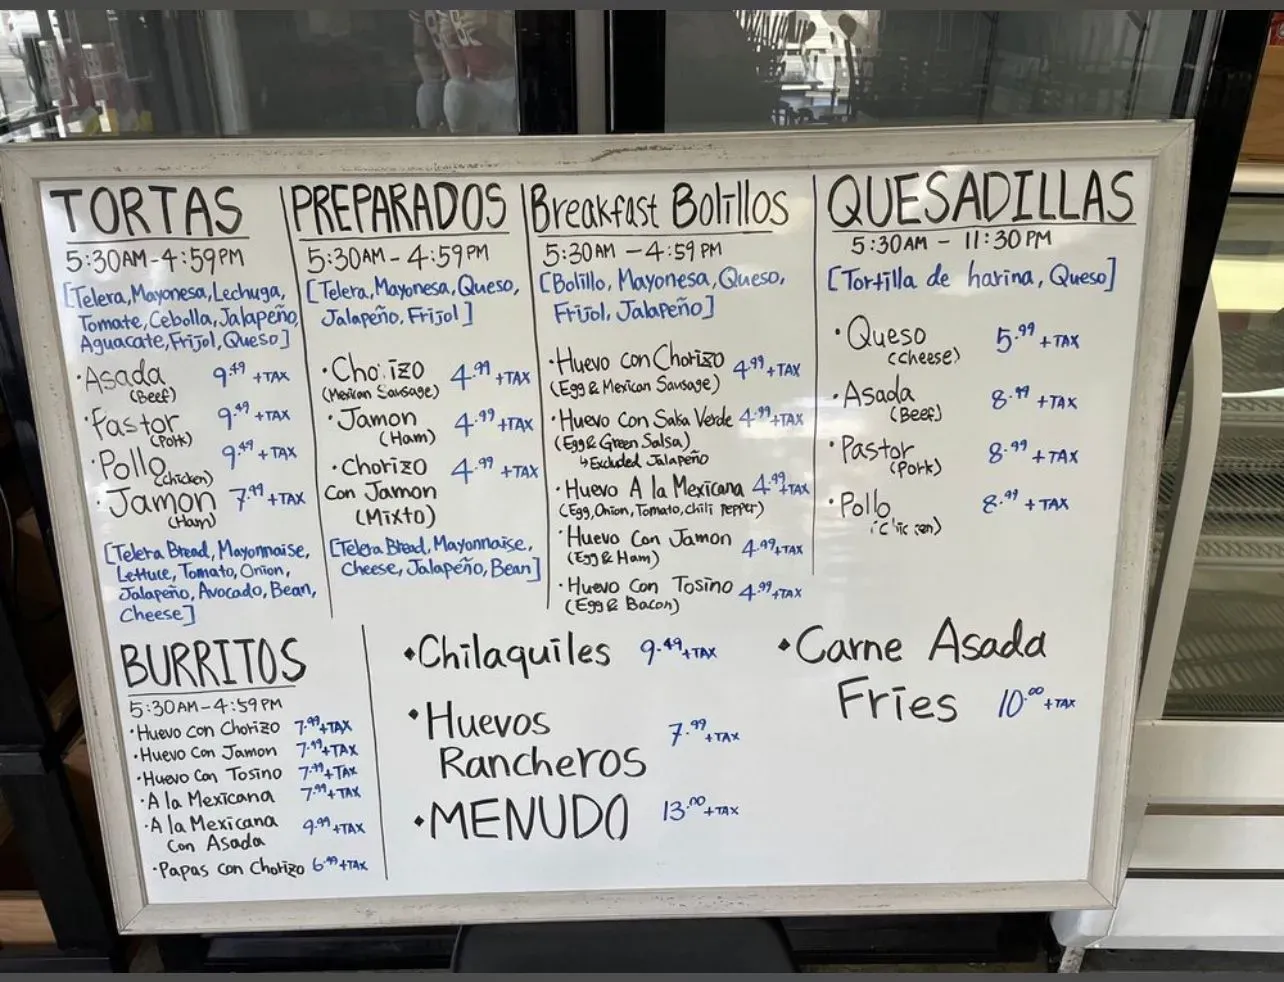 TORTAS
5:30AM-4:59PM
[Telera, Mayonesa, Lechuga,
Tomate, Cebolla, Jalapeño,
Aguacate, Frijol, Queso]
·Asada 9.49 +TAX
(Beef)
·Pastor 9.49 +TAX
(Pork)
·Pollo 9.49 +TAX
(Chicken)
·Jamon 7.99 +TAX
(Ham)
[Telera Bread, Mayonnaise,
Lettuce, Tomato, Onion,
Jalapeño, Avocado, Bean,
Cheese]
PREPARADOS
5:30AM-4:59PM
[Telera, Mayonesa, Queso,
Jalapeño, Frijol]
·Chorizo 4.99 +TAX
(Mexican Sausage)
·Jamon 4.99 +TAX
(Ham)
·Chorizo 4.99 +TAX
Con Jamon
(Mixto)
[Telera Bread, Mayonnaise,
Cheese, Jalapeño, Bean]
Breakfast Bolillos
5:30AM-4:59PM
[Bolillo, Mayonesa, Queso,
Frijol, Jalapeño]
·Huevo con Chorizo 4.99 +TAX
(Egg & Mexican Sausage)
·Huevo Con Salsa Verde 4.99 +TAX
(Egg & Green Salsa)
↳ Excluded Jalapeño
·Huevo A la Mexicana 4.99 +TAX
(Egg, Onion, Tomato, chili Pepper)
·Huevo Con Jamon 4.99 +TAX
(Egg & Ham)
·Huevo Con Tosino 4.99 +TAX
(Egg & Bacon)
QUESADILLAS
5:30AM - 11:30PM
[Tortilla de harina, Queso]
·Queso 5.99 +TAX
(cheese)
·Asada 8.99 +TAX
(Beef)
·Pastor 8.99 +TAX
(Pork)
·Pollo 8.99 +TAX
(Chicken)
BURRITOS
5:30AM-4:59PM
·Huevo con Chorizo 7.99 +TAX
·Huevo Con Jamon 7.99 +TAX
·Huevo Con Tosino 7.99 +TAX
·A la Mexicana 7.99 +TAX
·A la Mexicana 9.99 +TAX
con Asada
·Papas con Chorizo 6.99 +TAX
·Chilaquiles 9.49 +TAX
·Huevos
Rancheros 7.99 +TAX
·MENUDO 13.00 +TAX
·Carne Asada
Fries 10.00 +TAX